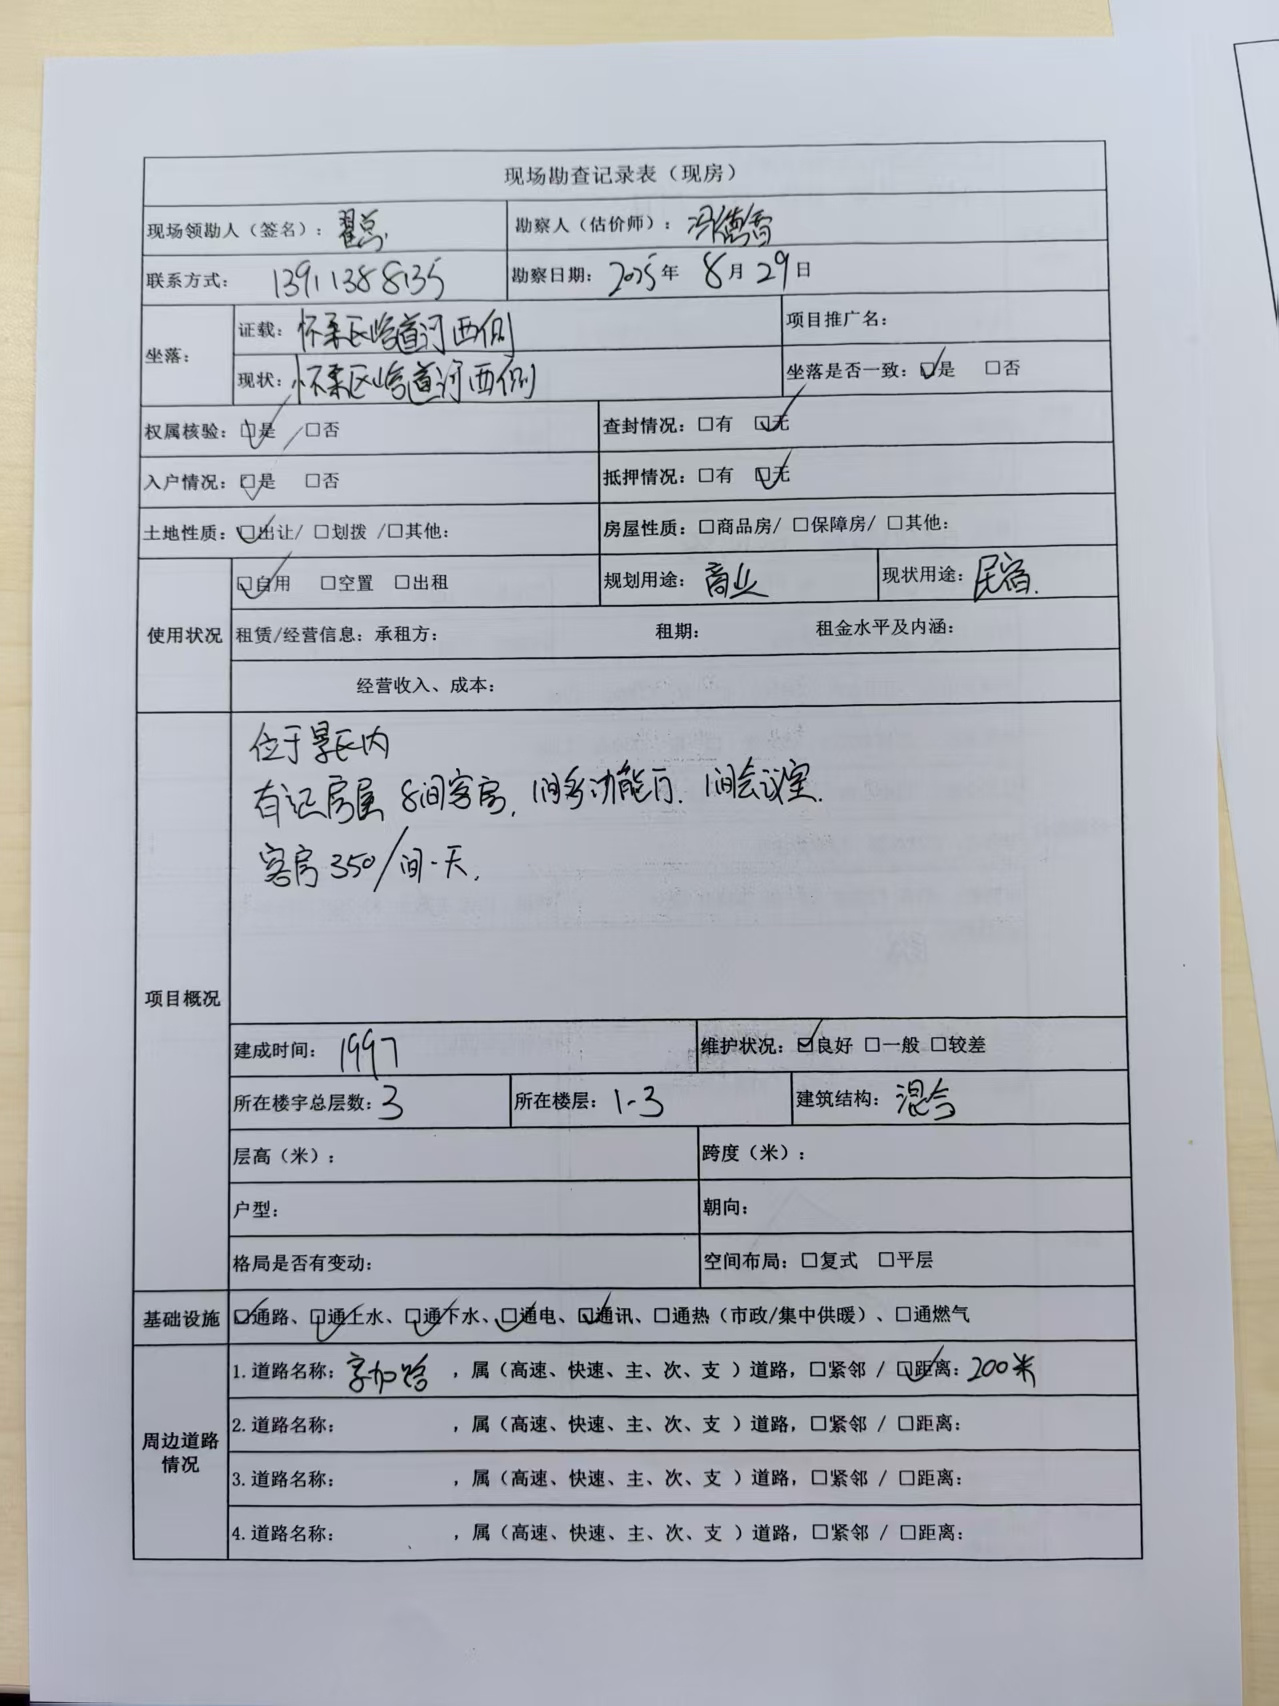 现场勘查记录表（现房）
现场领勘人（签名）：翟总 勘察人（估价师）：冯德
联系方式：13911388135 勘察日期：2025年 8月29日
坐落：
证载：怀柔区峪道河西侧 项目推广名：
现状：怀柔区峪道河西侧 坐落是否一致：☑是 □否
权属核验：☑是 □否 查封情况：□有 ☑无
入户情况：☑是 □否 抵押情况：□有 ☑无
土地性质：☑出让/ □划拨 /□其他： 房屋性质：□商品房/ □保障房/ □其他：
使用状况
☑自用 □空置 □出租 规划用途：商业 现状用途：民宿.
租赁/经营信息：承租方： 租期： 租金水平及内涵：
经营收入、成本：
项目概况
位于景区内
有记房屋 8间客房, 1间多功能厅. 1间会议室.
客房350/间·天.
建成时间：1997 维护状况：☑良好 □一般 □较差
所在楼宇总层数：3 所在楼层：1-3 建筑结构：混合
层高（米）： 跨度（米）：
户型： 朝向：
格局是否有变动： 空间布局：□复式 □平层
基础设施 ☑通路、☑通上水、☑通下水、☑通电、☑通讯、□通热（市政/集中供暖）、□通燃气
周边道路情况
1.道路名称： ，属（高速、快速、主、次、支 ）道路，□紧邻 / ☑距离：200米
2.道路名称： ，属（高速、快速、主、次、支 ）道路，□紧邻 / □距离：
3.道路名称： ，属（高速、快速、主、次、支 ）道路，□紧邻 / □距离：
4.道路名称： ，属（高速、快速、主、次、支 ）道路，□紧邻 / □距离：